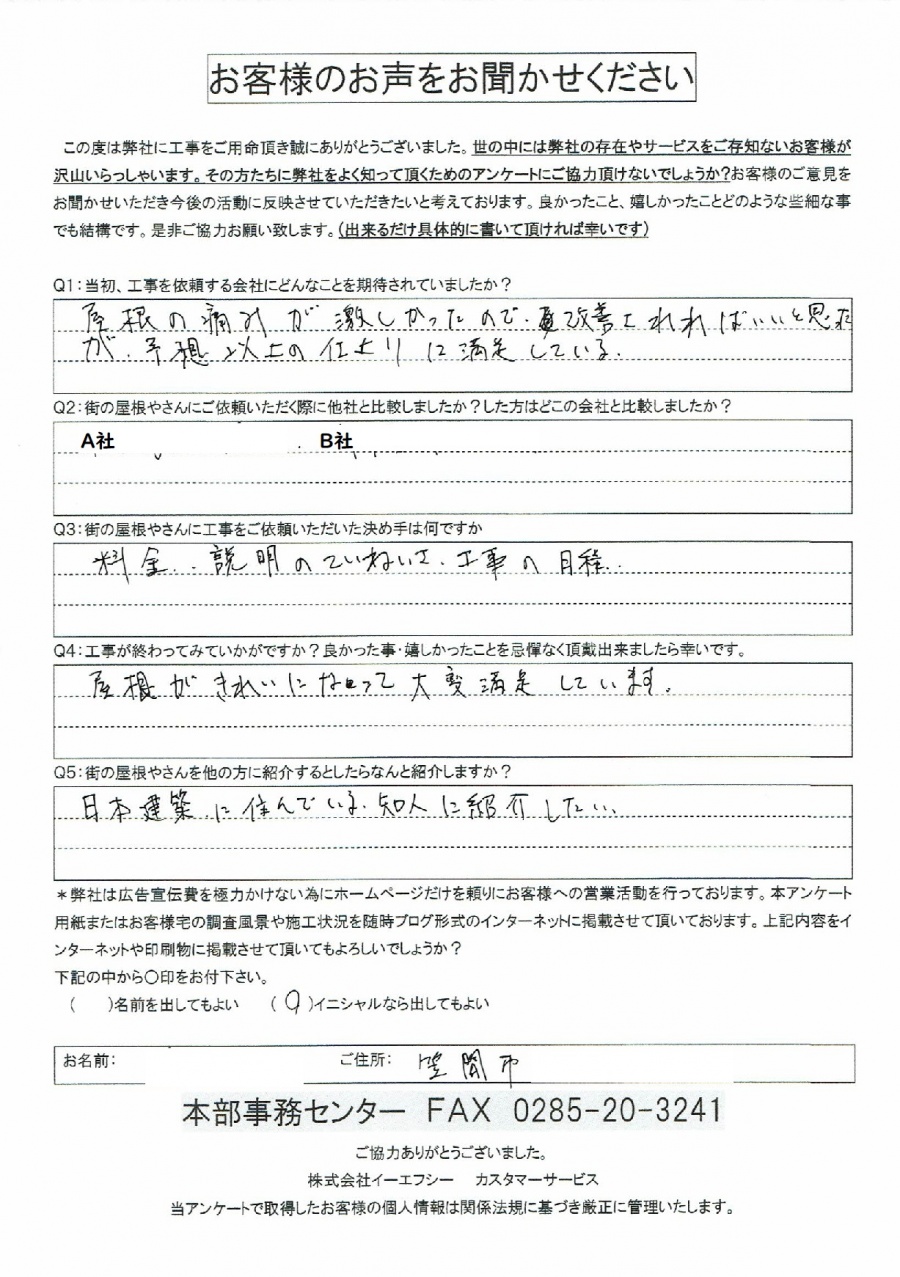 お客様のお声をお聞かせください
この度は弊社に工事をご用命頂き誠にありがとうございました。世の中には弊社の存在やサービスをご存知ないお客様が
沢山いらっしゃいます。その方たちに弊社をよく知って頂くためのアンケートにご協力頂けないでしょうか?お客様のご意見を
お聞かせいただき今後の活動に反映させていただきたいと考えております。良かったこと、嬉しかったことどのような些細な事
でも結構です。是非ご協力お願い致します。(出来るだけ具体的に書いて頂ければ幸いです)
Q1:当初、工事を依頼する会社にどんなことを期待されていましたか?
屋根の痛みが激しかったので、改善されればいいと思った
が、予想以上の仕上りに満足している。
Q2:街の屋根やさんにご依頼いただく際に他社と比較しましたか?した方はどこの会社と比較しましたか?
A社 B社
Q3:街の屋根やさんに工事をご依頼いただいた決め手は何ですか
料金、説明のていねいさ、工事の日程、
Q4:工事が終わってみていかがですか?良かった事・嬉しかったことを忌憚なく頂戴出来ましたら幸いです。
屋根がきれいになって大変満足しています。
Q5:街の屋根やさんを他の方に紹介するとしたらなんと紹介しますか?
日本建築に住んでいる、知人に紹介したい、
*弊社は広告宣伝費を極力かけない為にホームページだけを頼りにお客様への営業活動を行っております。本アンケート
用紙またはお客様宅の調査風景や施工状況を随時ブログ形式のインターネットに掲載させて頂いております。上記内容をイ
ンターネットや印刷物に掲載させて頂いてもよろしいでしょうか?
下記の中から○印をお付下さい。
( )名前を出してもよい (○)イニシャルなら出してもよい
お名前: ご住所: 笠間市
本部事務センター FAX 0285-20-3241
ご協力ありがとうございました。
株式会社イーエフシー カスタマーサービス
当アンケートで取得したお客様の個人情報は関係法規に基づき厳正に管理いたします。